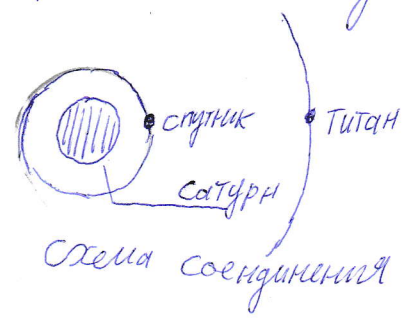 спутник
Титан
Сатурн
Схема соендинения